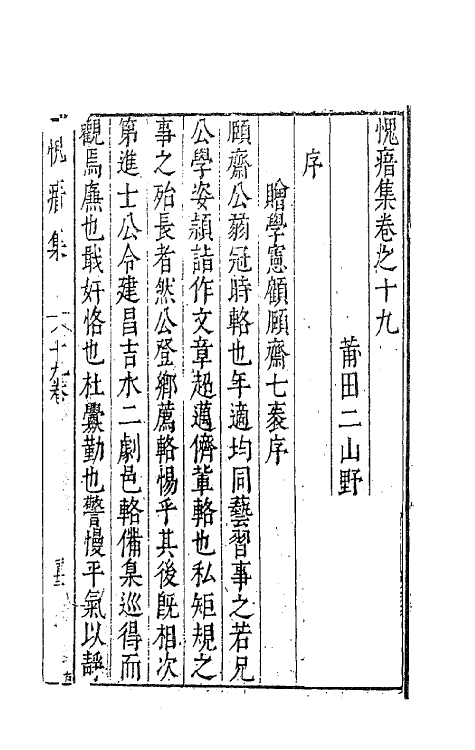 愧瘖集卷之十九
莆田二山野
序
贈學憲顧頤齋七袠序
頤齋公蒻冠時輅也年適均同藝習事之若兄
公學姿頴詣作文章超邁儕輩輅也私矩規之
事之殆長者然公登鄉薦輅惕乎其後旣相次
第進士公令建昌吉水二劇邑輅備臬巡得而
觀焉廉也戢奸恪也杜釁勤也警慢平氣以靜
愧瘖集
十九卷